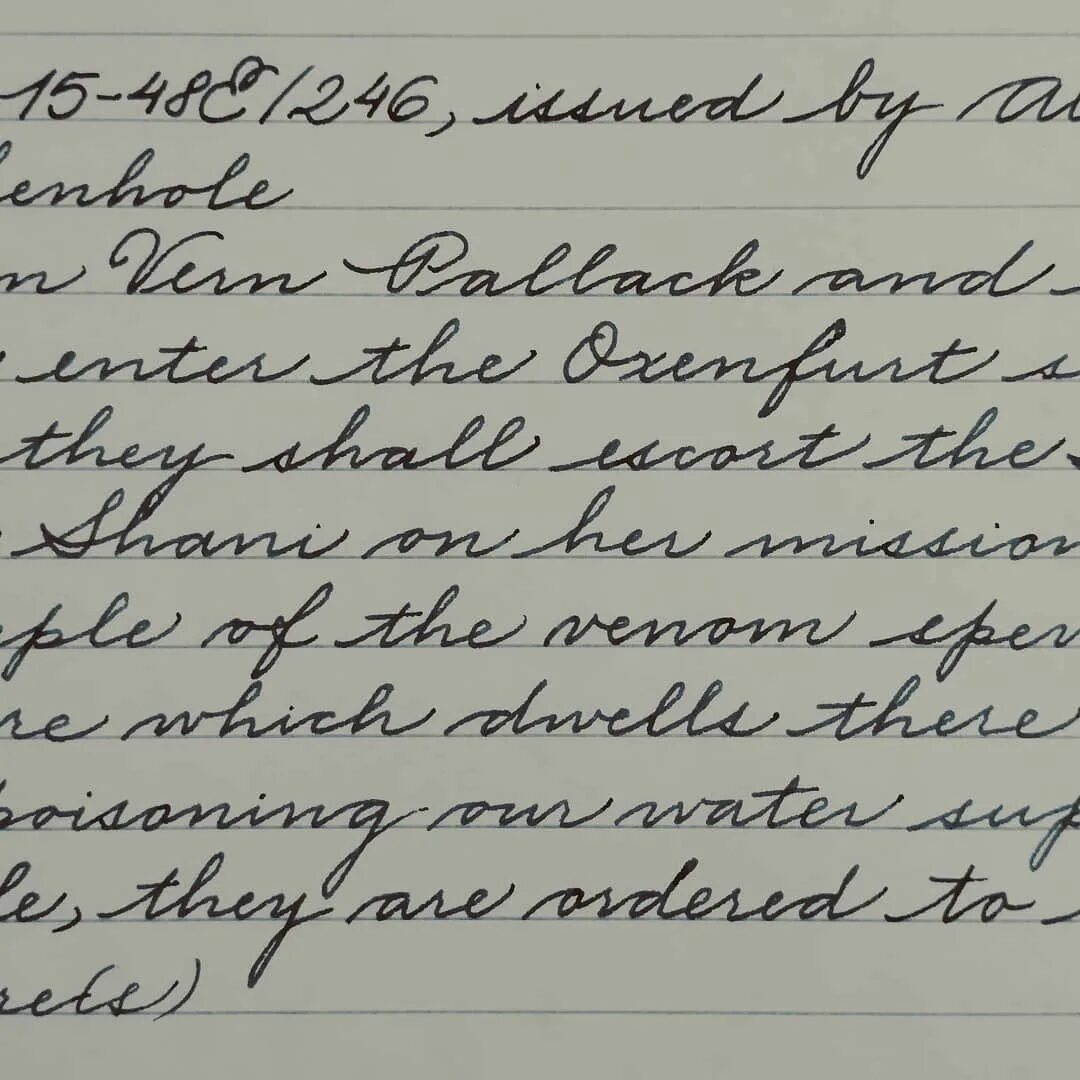 -15-48E/246, issued by Al
henhole
n Vern Pallack and
enter the Oxenfurt s
they shall escort the
Shani on her mission
ple of the venom spew
re which dwells there
poisoning our water sup
le, they are ordered to
re(s)